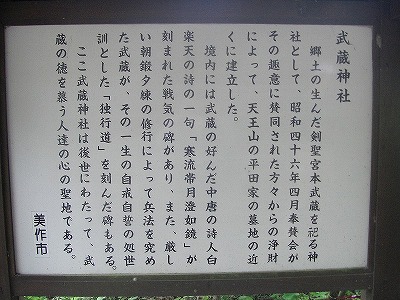 武蔵神社
郷土の生んだ剣聖宮本武蔵を祀る神
社として、昭和四十六年四月奉賛会が
その趣意に賛同された方々からの浄財
によって、天王山の平田家の墓地の近
くに建立した。
境内には武蔵の好んだ中唐の詩人白
楽天の詩の一句「寒流帯月澄如鏡」が
刻まれた戦気の碑があり、また、厳し
い朝鍛夕錬の修行によって兵法を究め
た武蔵が、その一生の自戒自誓の処世
訓とした「独行道」を刻んだ碑もある。
ここ武蔵神社は後世にわたって、武
蔵の徳を慕う人達の心の聖地である。
美作市